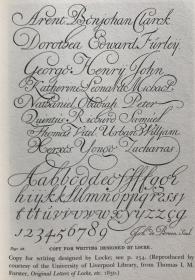 Arent Bonjohan Clarck
Dorothea Edward Furley
George Henry John
Katherine Leonard Michael
Nathaniel Obadiah Peter
Quintus Richard Symuel
Thomas Vital Urban William
Xerxes Youge Zacharias
Aabbcddeeffffggh
hiykklMmnñopqrsſst
tuuvvwwxxyyzzçg
1234567890
Page 28.
COPY FOR WRITING DESIGNED BY LOCKE.
Copy for writing designed by Locke; see p. 254. (Reproduced by
courtesy of the University of Liverpool Library, from Thomas I. M.
Forster, Original Letters of Locke, etc. 1830.)